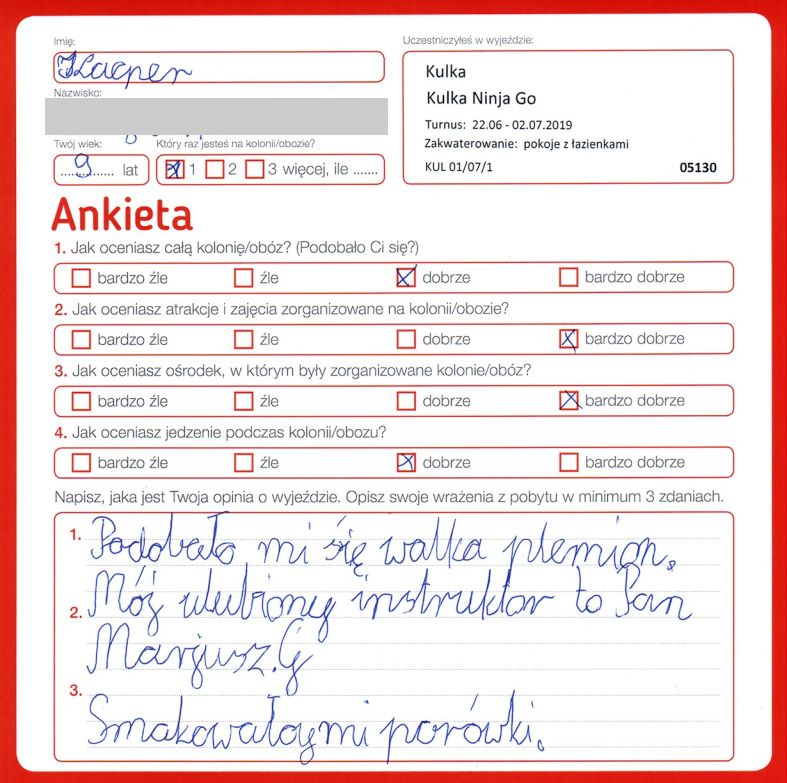 Imię:
Uczestniczyłeś w wyjeździe:
Kacper
Kulka
Nazwisko:
Kulka Ninja Go
Turnus: 22.06 - 02.07.2019
Twój wiek:
Który raz jesteś na kolonii/obozie?
Zakwaterowanie: pokoje z łazienkami
...9... lat
1 2 3 więcej, ile .......
KUL 01/07/1 05130
Ankieta
1. Jak oceniasz całą kolonię/obóz? (Podobało Ci się?)
bardzo źle źle dobrze bardzo dobrze
2. Jak oceniasz atrakcje i zajęcia zorganizowane na kolonii/obozie?
bardzo źle źle dobrze bardzo dobrze
3. Jak oceniasz ośrodek, w którym były zorganizowane kolonie/obóz?
bardzo źle źle dobrze bardzo dobrze
4. Jak oceniasz jedzenie podczas kolonii/obozu?
bardzo źle źle dobrze bardzo dobrze
Napisz, jaka jest Twoja opinia o wyjeździe. Opisz swoje wrażenia z pobytu w minimum 3 zdaniach.
1. Podobało mi się walka plemion.
2. Mój ulubiony instruktor to Pan
Marjusz.G
3. Smakowałoymi porówki.